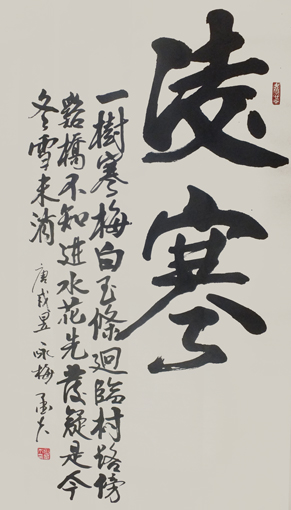 凌寒
一樹寒梅白玉條廻臨村路傍
谿橋不知進水花先發疑是今
冬雪未消
唐戎昱 咏梅